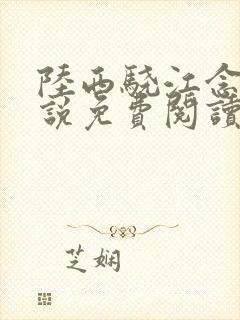 陸西驍江念
說免費閱讀
芝嫻